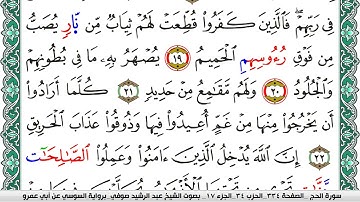 فِي رَبِّهِمْ فَالَّذِينَ كَفَرُوا قُطِّعَتْ لَهُمْ ثِيَابٌ مِّن نَّارٍ يُصَبُّ
مِن فَوْقِ رُءُوسِهِمِ الْحَمِيمُ ١٩ يُصْهَرُ بِهِ مَا فِي بُطُونِهِمْ
وَالْجُلُودُ ٢٠ وَلَهُم مَّقَامِعُ مِنْ حَدِيدٍ ٢١ كُلَّمَا أَرَادُوا
أَن يَخْرُجُوا مِنْهَا مِنْ غَمٍّ أُعِيدُوا فِيهَا وَذُوقُوا عَذَابَ الْحَرِيقِ
٢٢ إِنَّ اللَّهَ يُدْخِلُ الَّذِينَ ءَامَنُوا وَعَمِلُوا الصَّالِحَات
سورة الحج _ الصفحة ٣٣٤ _ الحزب ٣٤ _ الجزء ١٧ _ بصوت الشيخ عبد الرشيد صوفي _ برواية السوسي عن أبي عمرو